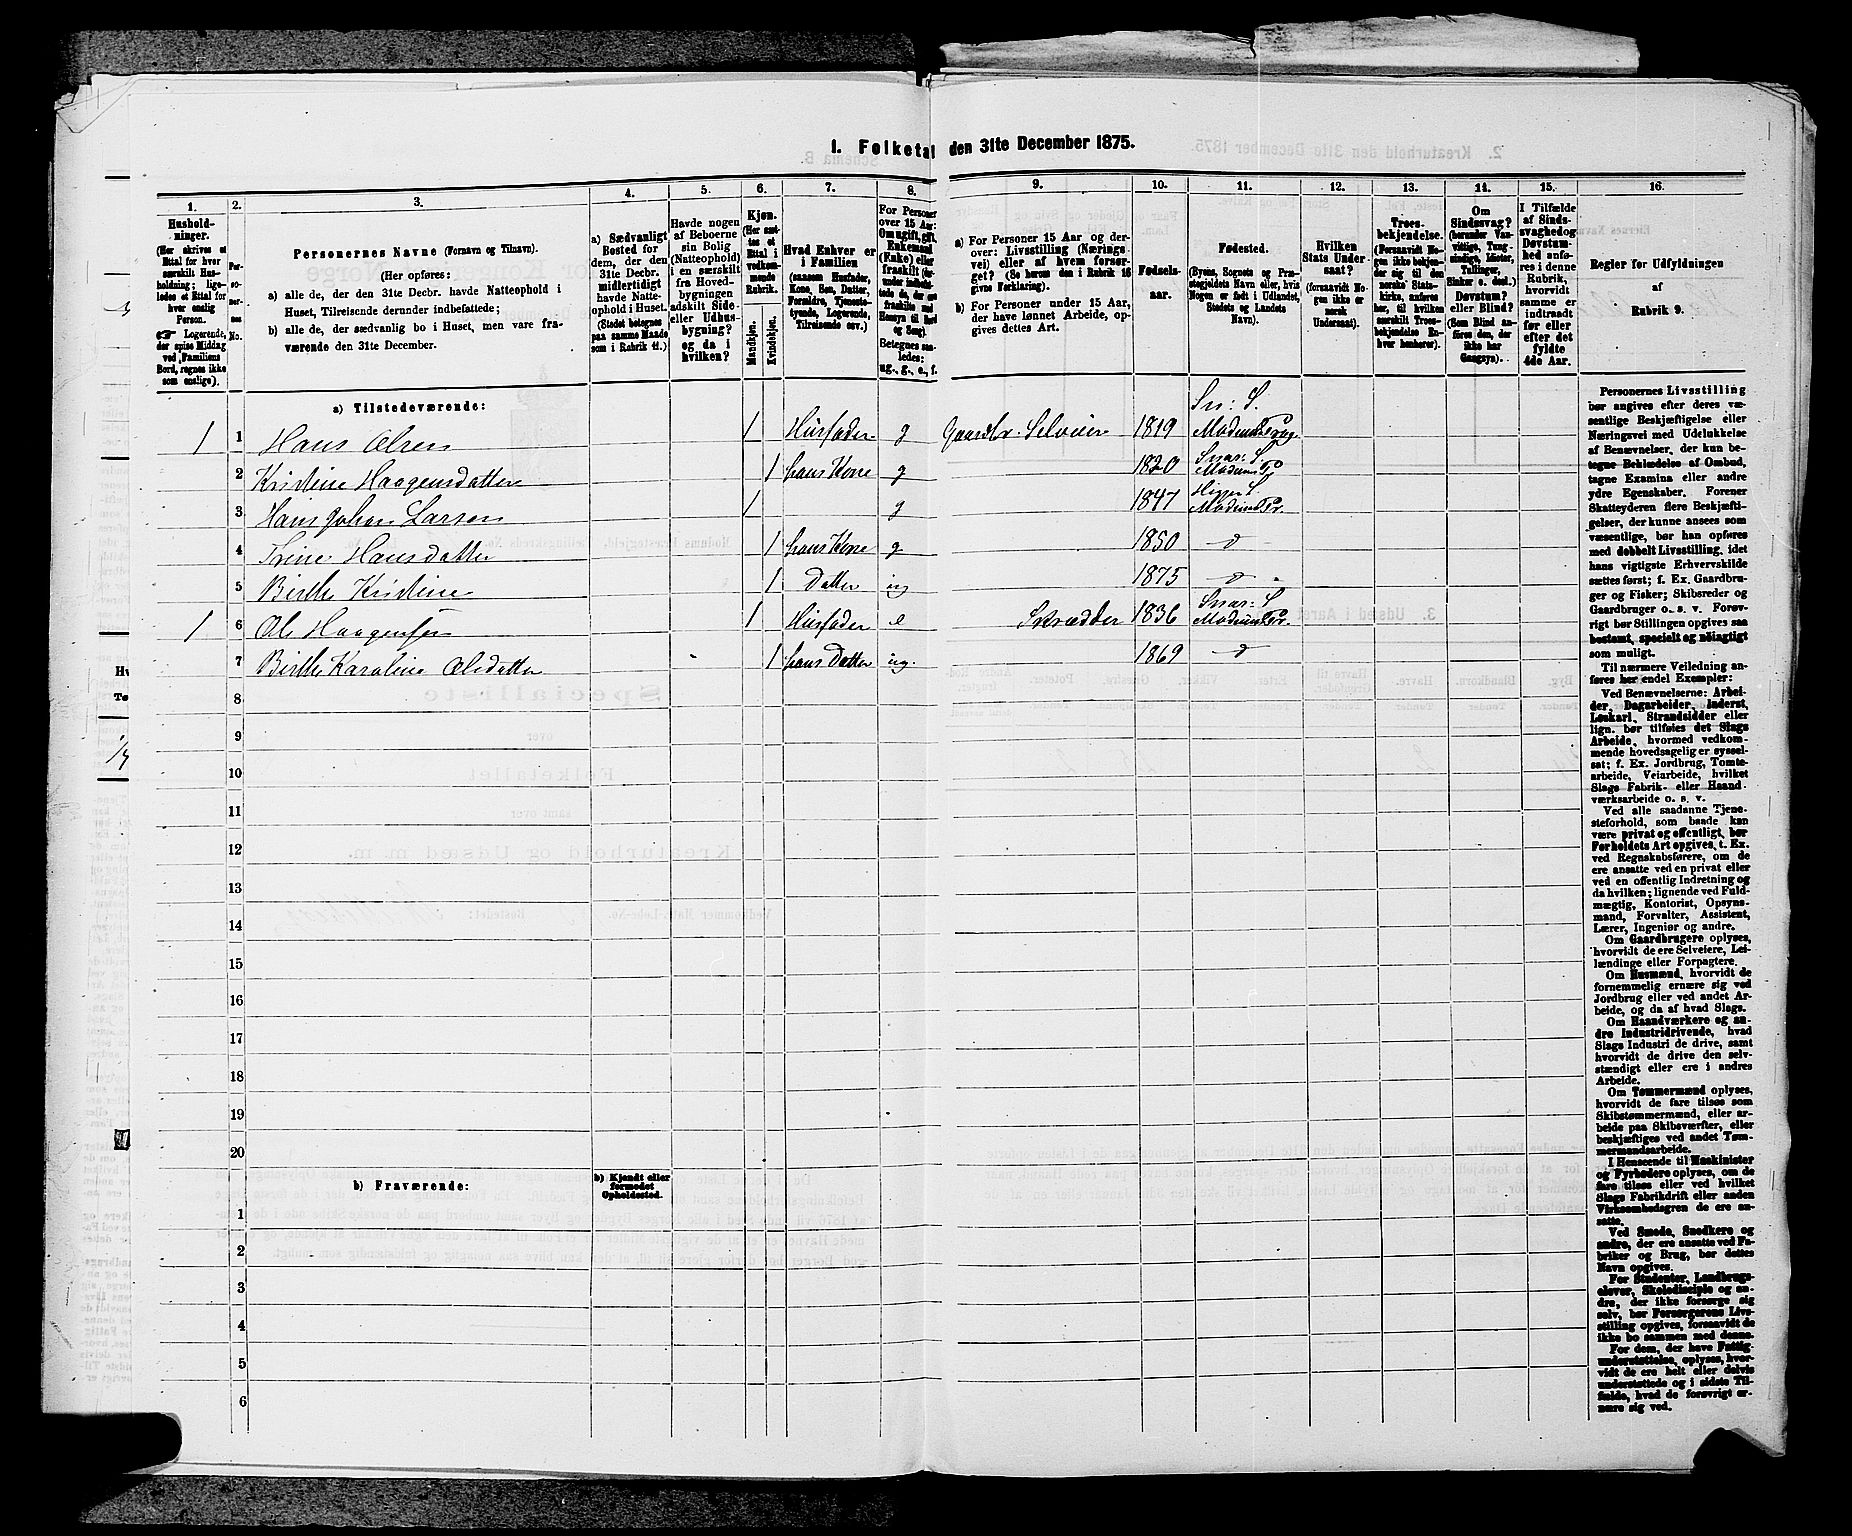 1. Folketal den 31te December 1875.
1. 2. 3. 4. 5. 6. 7. 8. 9. 10. 11. 12. 13. 14. 15. 16.
Hushold-
ninger.
(Her skrives et
Ettal for hver
særskilt Hus-
holdning; lige-
ledes et Ettal for
hver enslig
Person.
Logerende,
der spise Middag
ved Familiens
Bord, regnes ikke
som enslige).
Per-
so-
ner-
nes
No.
Personernes Navne (Fornavn og Tilnavn).
(Her opføres:
a) alle de, der den 31te Decbr. havde Natteophold i
Huset, Tilreisende derunder indbefattede;
b) alle de, der sædvanlig bo i Huset, men vare fra-
værende den 31te December.
a) Sædvanligt
Bosted for
dem, der den
31te Decbr.
midlertidigt
havde Natte-
ophold i Huset.
(Stedet betegnes
paa samme Maade
som i Rubrik 11.)
Havde nogen
af Beboerne
sin Bolig
(Natteophold)
i en særskilt
fra Hoved-
bygningen
adskilt Side-
eller Udhus-
bygning?
og da i
hvilken?
Kjøn.
(Her sæt-
tes et
Ettal i
vedkom-
mende
Rubrik.
Mandkjøn.
Kvindekjøn.
Hvad Enhver er
i Familien
(saasom Husfader,
Kone, Søn, Datter,
Forældre, Tjeneste-
tyende, Logerende,
Tilreisende osv.)
For Personer
over 15 Aar:
Om ugift, gift,
Enkemand
(Enke) eller
fraskilt
Betegnes saa-
ledes:
ug., g., e., f.
a) For Personer 15 Aar og der-
over: Livsstilling (Nærings-
vei) eller af hvem forsør-
get? (Se herom den i Rubrik 16
givne Forklaring).
b) For Personer under 15 Aar,
der have lønnet Arbeide, op-
gives dettes Art.
Fødsels-
aar.
Fødested.
(Byens, Sognets og Præ-
stegjeldets Navn eller, hvis
Nogen er født i Udlandet,
Stedets og Landets
Navn).
Hvilken
Stats Under-
saat?
(forsaavidt No-
gen ikke er
norsk
Undersaat).
Troes-
bekjendelse.
(Forsaavidt No-
gen ikke bekjen-
der sig til den
norske Stats-
kirke, anføres
her, til hvilken
særskilt Troes-
bekjendelse En-
hver henhører).
Om
Sindssvag?
(herunder Van-
vittige, Tung-
sindige, Idioter,
Tullinger,
Sinker o. desl.)
Døvstum?
eller Blind?
(Som Blind an-
føres den, der
ikke har
Gangsyn).
I Tilfælde
af Sinds-
svaghed og
Døvstum-
hed anføres
i denne
Rubrik,
hvorvidt
samme er
indtraadt
før eller
efter det
fyldte
4de Aar.
Regler for Udfyldningen
af
Rubrik 9.
a) Tilstedeværende:
1 1 Hans Olsen 1 Husfader g Gaardbr. Selveier 1819 Sn: S. Modum Præg.
2 Kristine Haagensdatter 1 hans Kone g 1820 Snar: S. Modum P
3 Hans Johan Larsen 1 g 1847 Heggen S. Modum Pr.
4 Trine Hansdatter 1 hans Kone g 1850 d
5 Birthe Kristine 1 Datter ug 1875 d
1 6 Ole Haagensen 1 Husfader e Skrædder 1836 Snar: S Modum Pr.
7 Birthe Karoline Olsdatter 1 hans Datter ug. 1869 d
8
9
10
11
12
13
14
15
16
17
18
19
20
b) Fraværende:
b) Kjendt eller
formodet
Opholdssted.
1
2
3
4
5
6
Personernes Livsstilling
bør angives efter deres væ-
sentlige Beskjæftigelse eller
Næringsvei med Udelukkelse
af Benævnelser, der kun be-
tegne Beklædelse af Ombud,
tagne Examina eller andre
ydre Egenskaber. Forener
Skatteyderen flere Beskjæfti-
gelser, der kunne ansees som
væsentlige, bør han opføres
med dobbelt Livsstilling, idet
hans vigtigste Erhvervskilde
sættes først; f. Ex. Gaardbru-
ger og Fisker; Skibsreder og
Gaardbruger o. s. v. Forøv-
rigt bør Stillingen opgives saa
bestemt, specielt og nøiagtigt
som muligt.
Til nærmere Veiledning an-
føres her endel Exempler:
Ved Benævnelserne: Arbei-
der, Dagarbeider, Inderst,
Løskarl, Strandsidder eller
lign. bør tilføies det Slags
Arbeide, hvormed vedkom-
mende hovedsagelig er syssel-
sat; f. Ex. Jordbrug, Tomte-
arbeide, Veiarbeide, hvilket
Slags Fabrik- eller Haand-
værksarbeide o. s. v.
Ved alle saadanne Tjene-
steforhold, som baade kan
være privat og offentligt, bør
Forholdets Art opgives, t. Ex.
ved Regnskabsførere, om de
ere ansatte ved en privat eller
ved en offentlig Indretning og
da hvilken; lignende ved Fuld-
mægtig, Kontorist, Opsyns-
mand, Forvalter, Assistent,
Lærer, Ingeniør og andre.
Om Gaardbrugere oplyses,
hvorvidt de ere Selveiere, Lei-
lændinge eller Forpagtere.
Om Husmænd, hvorvidt de
fornemmelig ernære sig ved
Jordbrug eller ved andet Ar-
beide, og da af hvad Slags.
Om Haandværkere og an-
dre Industridrivende, hvad
Slags Industri de drive, samt
hvorvidt de drive den selv-
stændigt eller ere i andres
Arbeide.
Om Tømmermænd oplyses,
hvorvidt de fare tilsøs som
Skibstømmermænd, eller ar-
beide paa Skibsværfter, eller
beskjæftiges ved andet Tøm-
mermandsarbeide.
I Henseende til Maskinister
og Fyrbødere oplyses, om de
fare tilsøs eller ved hvilket
Slags Fabrikdrift eller anden
Virksomhedsgren de ere an-
satte.
Ved Smede, Snedkere og
andre, der ere ansatte ved Fa-
briker og Brug, bør dettes
Navn opgives.
For Studenter, Landbrugs-
elever, Skoledisciple og an-
dre, der ikke forsørge sig
selv, bør Forsørgerens Livs-
stilling opgives, forsaavidt de
ikke bo sammen med denne.
For dem, der have Fattig-
understøttelse, oplyses, hvor-
vidt de ere helt eller delvis
understøttede og i sidste Til-
fælde, hvad de forøvrigt er-
nære sig ved.